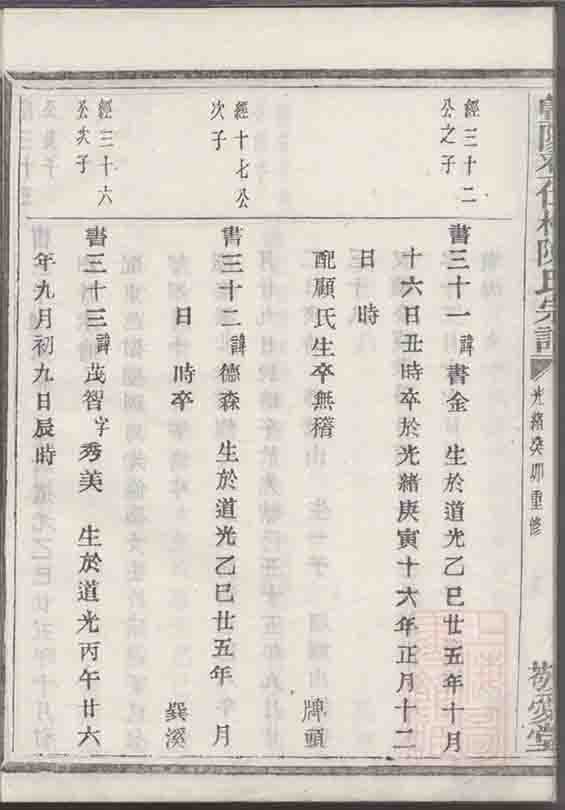 陳氏宗譜 光緒癸卯重修 敬愛堂
經三十二
公之子
書三十一諱書金 生於道光乙巳廿五年十月
十六日丑時卒於光緒庚寅十六年正月十二
日 時 牌頭
配顧氏生卒無稽
經十七公
次子
書三十二諱德森 生於道光乙巳廿五年 月
日 時卒 巽溪
經三十六
公次子
書三十三諱茂智字秀美 生於道光丙午廿六
年九月初九日辰時